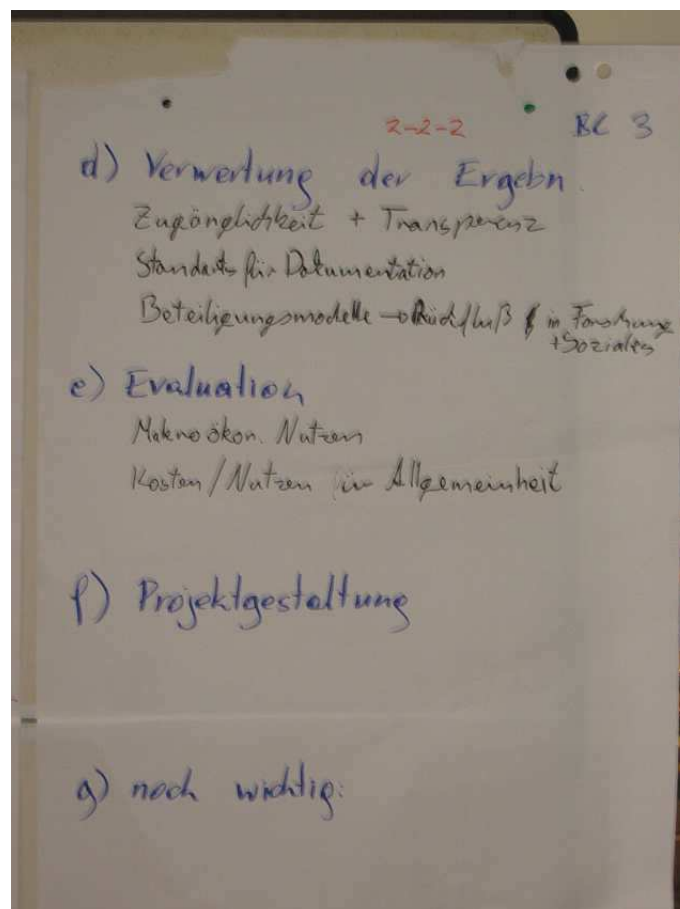 2-2-2 BC 3
d) Verwertung der Ergebn.
Zugänglichkeit + Transparenz
Standarts für Dokumentation
Beteiligungsmodelle → Rückfluß in Forschung
+ Soziales
e) Evaluation
Makroökon. Nutzen
Kosten/Nutzen für Allgemeinheit
f) Projektgestaltung
g) noch wichtig: